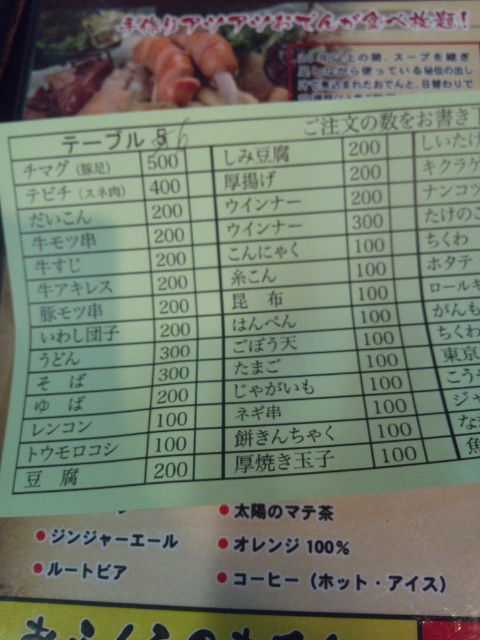 手作りアツアツおでんが食べ放題!
以上の間、スープを継ぎ
足しながら使っている秘伝の出し
汁で煮込まれたおでんと、日替わりで
ご注文の数をお書き下
テーブル
チマグ(豚足) 500
テビチ(スネ肉) 400
だいこん 200
牛モツ串 200
牛すじ 200
牛アキレス 200
豚モツ串 200
いわし団子 200
うどん 300
そば 300
ゆば 200
レンコン 100
トウモロコシ 100
豆腐 200
しみ豆腐 200
厚揚げ 200
ウインナー 200
ウインナー 300
こんにゃく 100
糸こん 100
昆布 100
はんぺん 100
ごぼう天 100
たまご 100
じゃがいも 100
ネギ串 100
餅きんちゃく 100
厚焼き玉子 100
しいたけ
キクラゲ
ナンコツ
たけのこ
ちくわ
ホタテ
ロールキ
がんも
ちくわ
東京
こう
ジャ
な
魚
●ジンジャーエール
●ルートビア
●太陽のマテ茶
●オレンジ100%
●コーヒー(ホット・アイス)